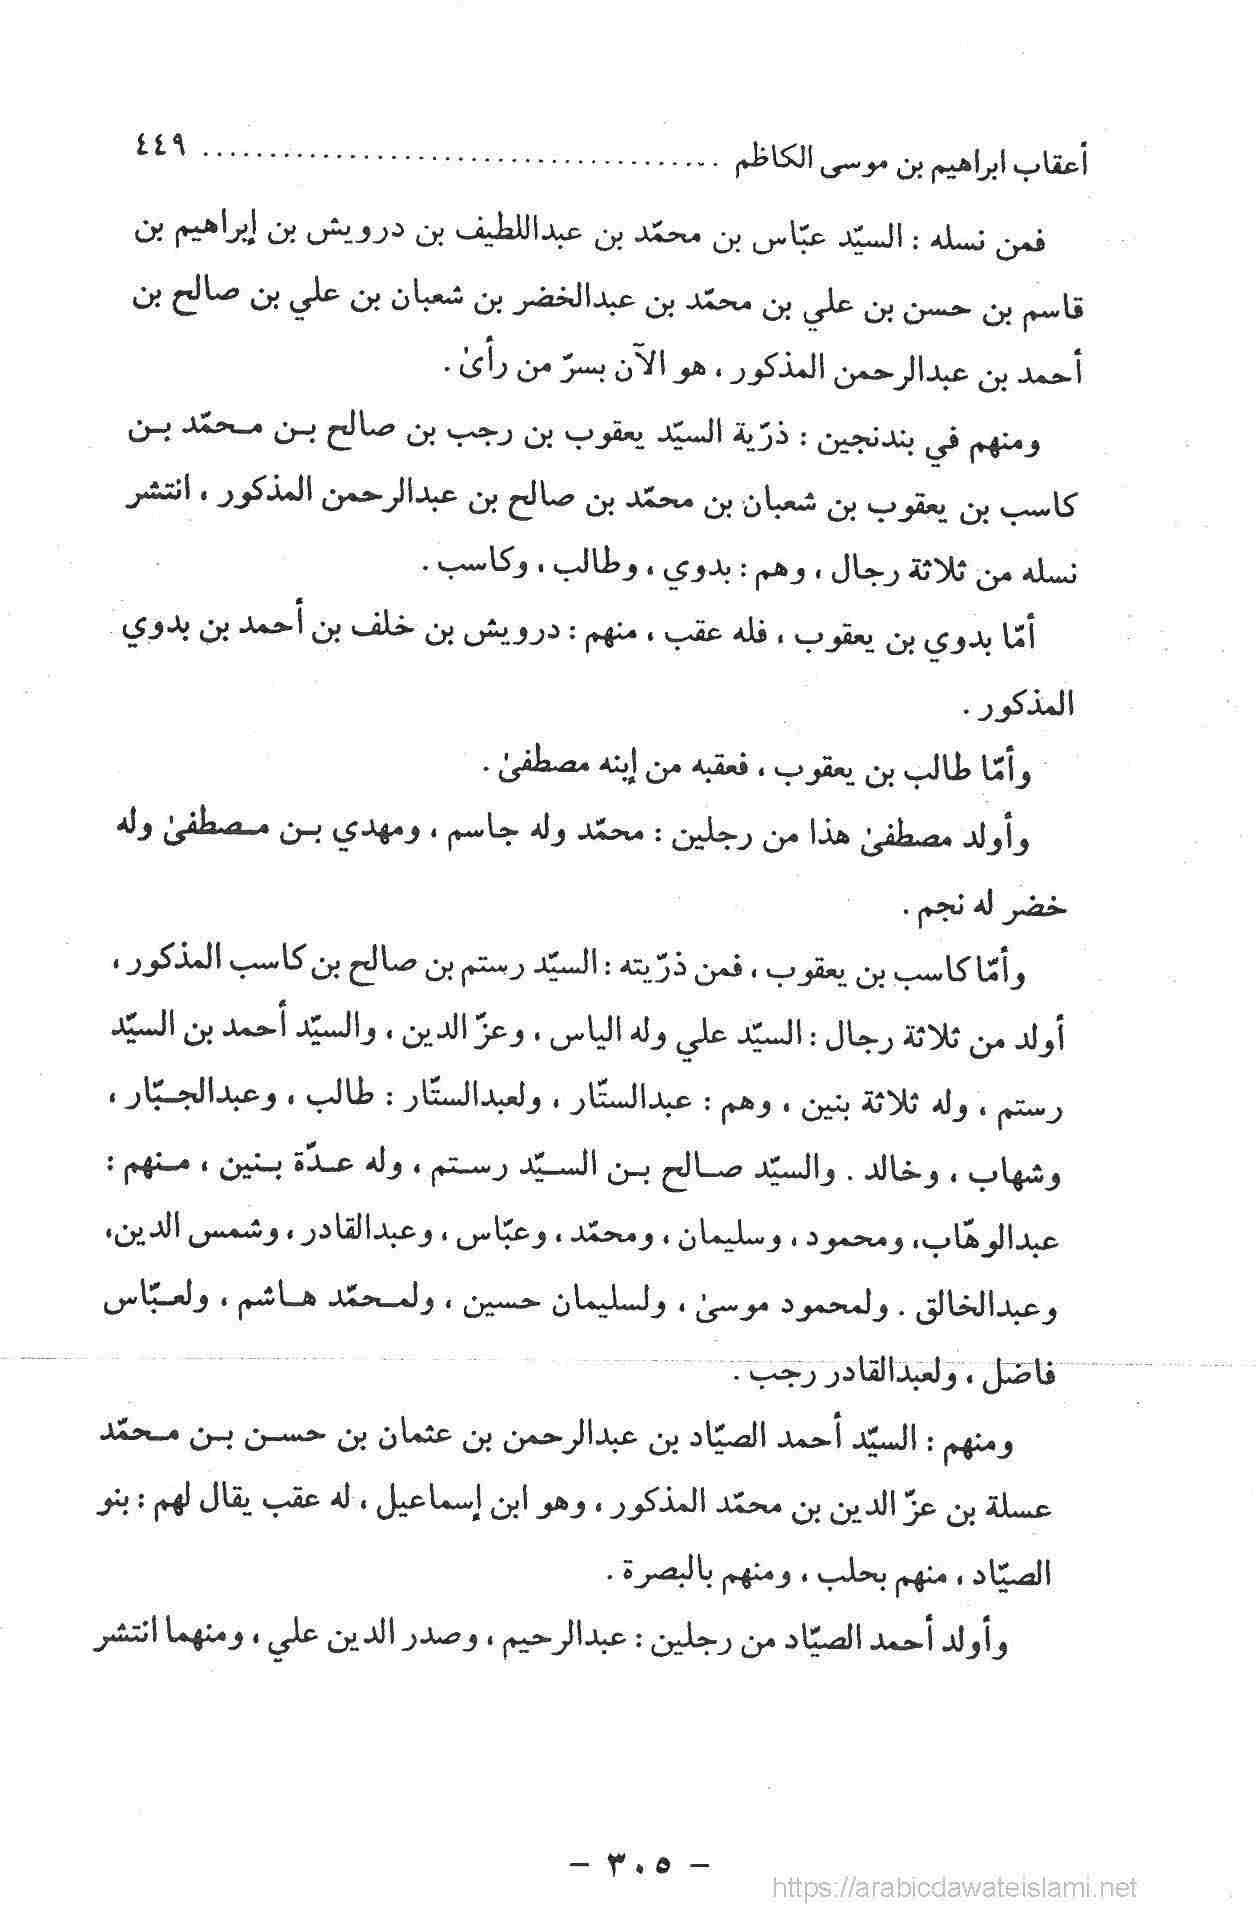 أعقاب ابراهيم بن موسى الكاظم ........................................ ٤٤٩
فمن نسله : السيّد عبّاس بن محمّد بن عبداللطيف بن درويش بن إبراهيم بن
قاسم بن حسن بن علي بن محمّد بن عبدالخضر بن شعبان بن علي بن صالح بن
أحمد بن عبدالرحمن المذكور ، هو الآن بسرّ من رأىٰ .
ومنهم في بندنجين : ذرّية السيّد يعقوب بن رجب بن صالح بـن مـحمّد بـن
كاسب بن يعقوب بن شعبان بن محمّد بن صالح بن عبدالرحمن المذكور ، انتشر
نسله من ثلاثة رجال ، وهم : بدوي ، وطالب ، وكاسب .
أمّا بدوي بن يعقوب ، فله عقب ، منهم : درويش بن خلف بن أحمد بن بدوي
المذكور .
وأمّا طالب بن يعقوب ، فعقبه من إبنه مصطفىٰ .
وأولد مصطفىٰ هذا من رجلين : محمّد وله جاسم ، ومهدي بـن مـصطفىٰ وله
خضر له نجم .
وأمّا كاسب بن يعقوب ، فمن ذرّيته : السيّد رستم بن صالح بن كاسب المذكور ،
أولد من ثلاثة رجال : السيّد علي وله الياس ، وعزّ الدين ، والسيّد أحمد بن السيّد
رستم ، وله ثلاثة بنين ، وهم : عبدالستّار ، ولعبدالستّار : طالب ، وعبدالجـبّار ،
وشهاب ، وخالد . والسيّد صـالح بـن السـيّد رسـتم ، وله عـدّة بـنين ، مـنهم :
عبدالوهّاب، ومحمود ، وسليمان ، ومحمّد ، وعبّاس ، وعبدالقادر ، وشمس الدين،
وعبدالخالق . ولمحمود موسىٰ ، ولسليمان حسين ، ولمـحمّد هـاشم ، ولعـبّاس
فاضل ، ولعبدالقادر رجب .
ومنهم : السيّد أحمد الصيّاد بن عبدالرحمن بن عثمان بن حسـن بـن مـحمّد
عسلة بن عزّ الدين بن محمّد المذكور ، وهو ابن إسماعيل ، له عقب يقال لهم : بنو
الصيّاد ، منهم بحلب ، ومنهم بالبصرة .
وأولد أحمد الصيّاد من رجلين : عبدالرحيم ، وصدر الدين علي ، ومنهما انتشر
– ٣٠٥ –
https://arabicdawateislami.net